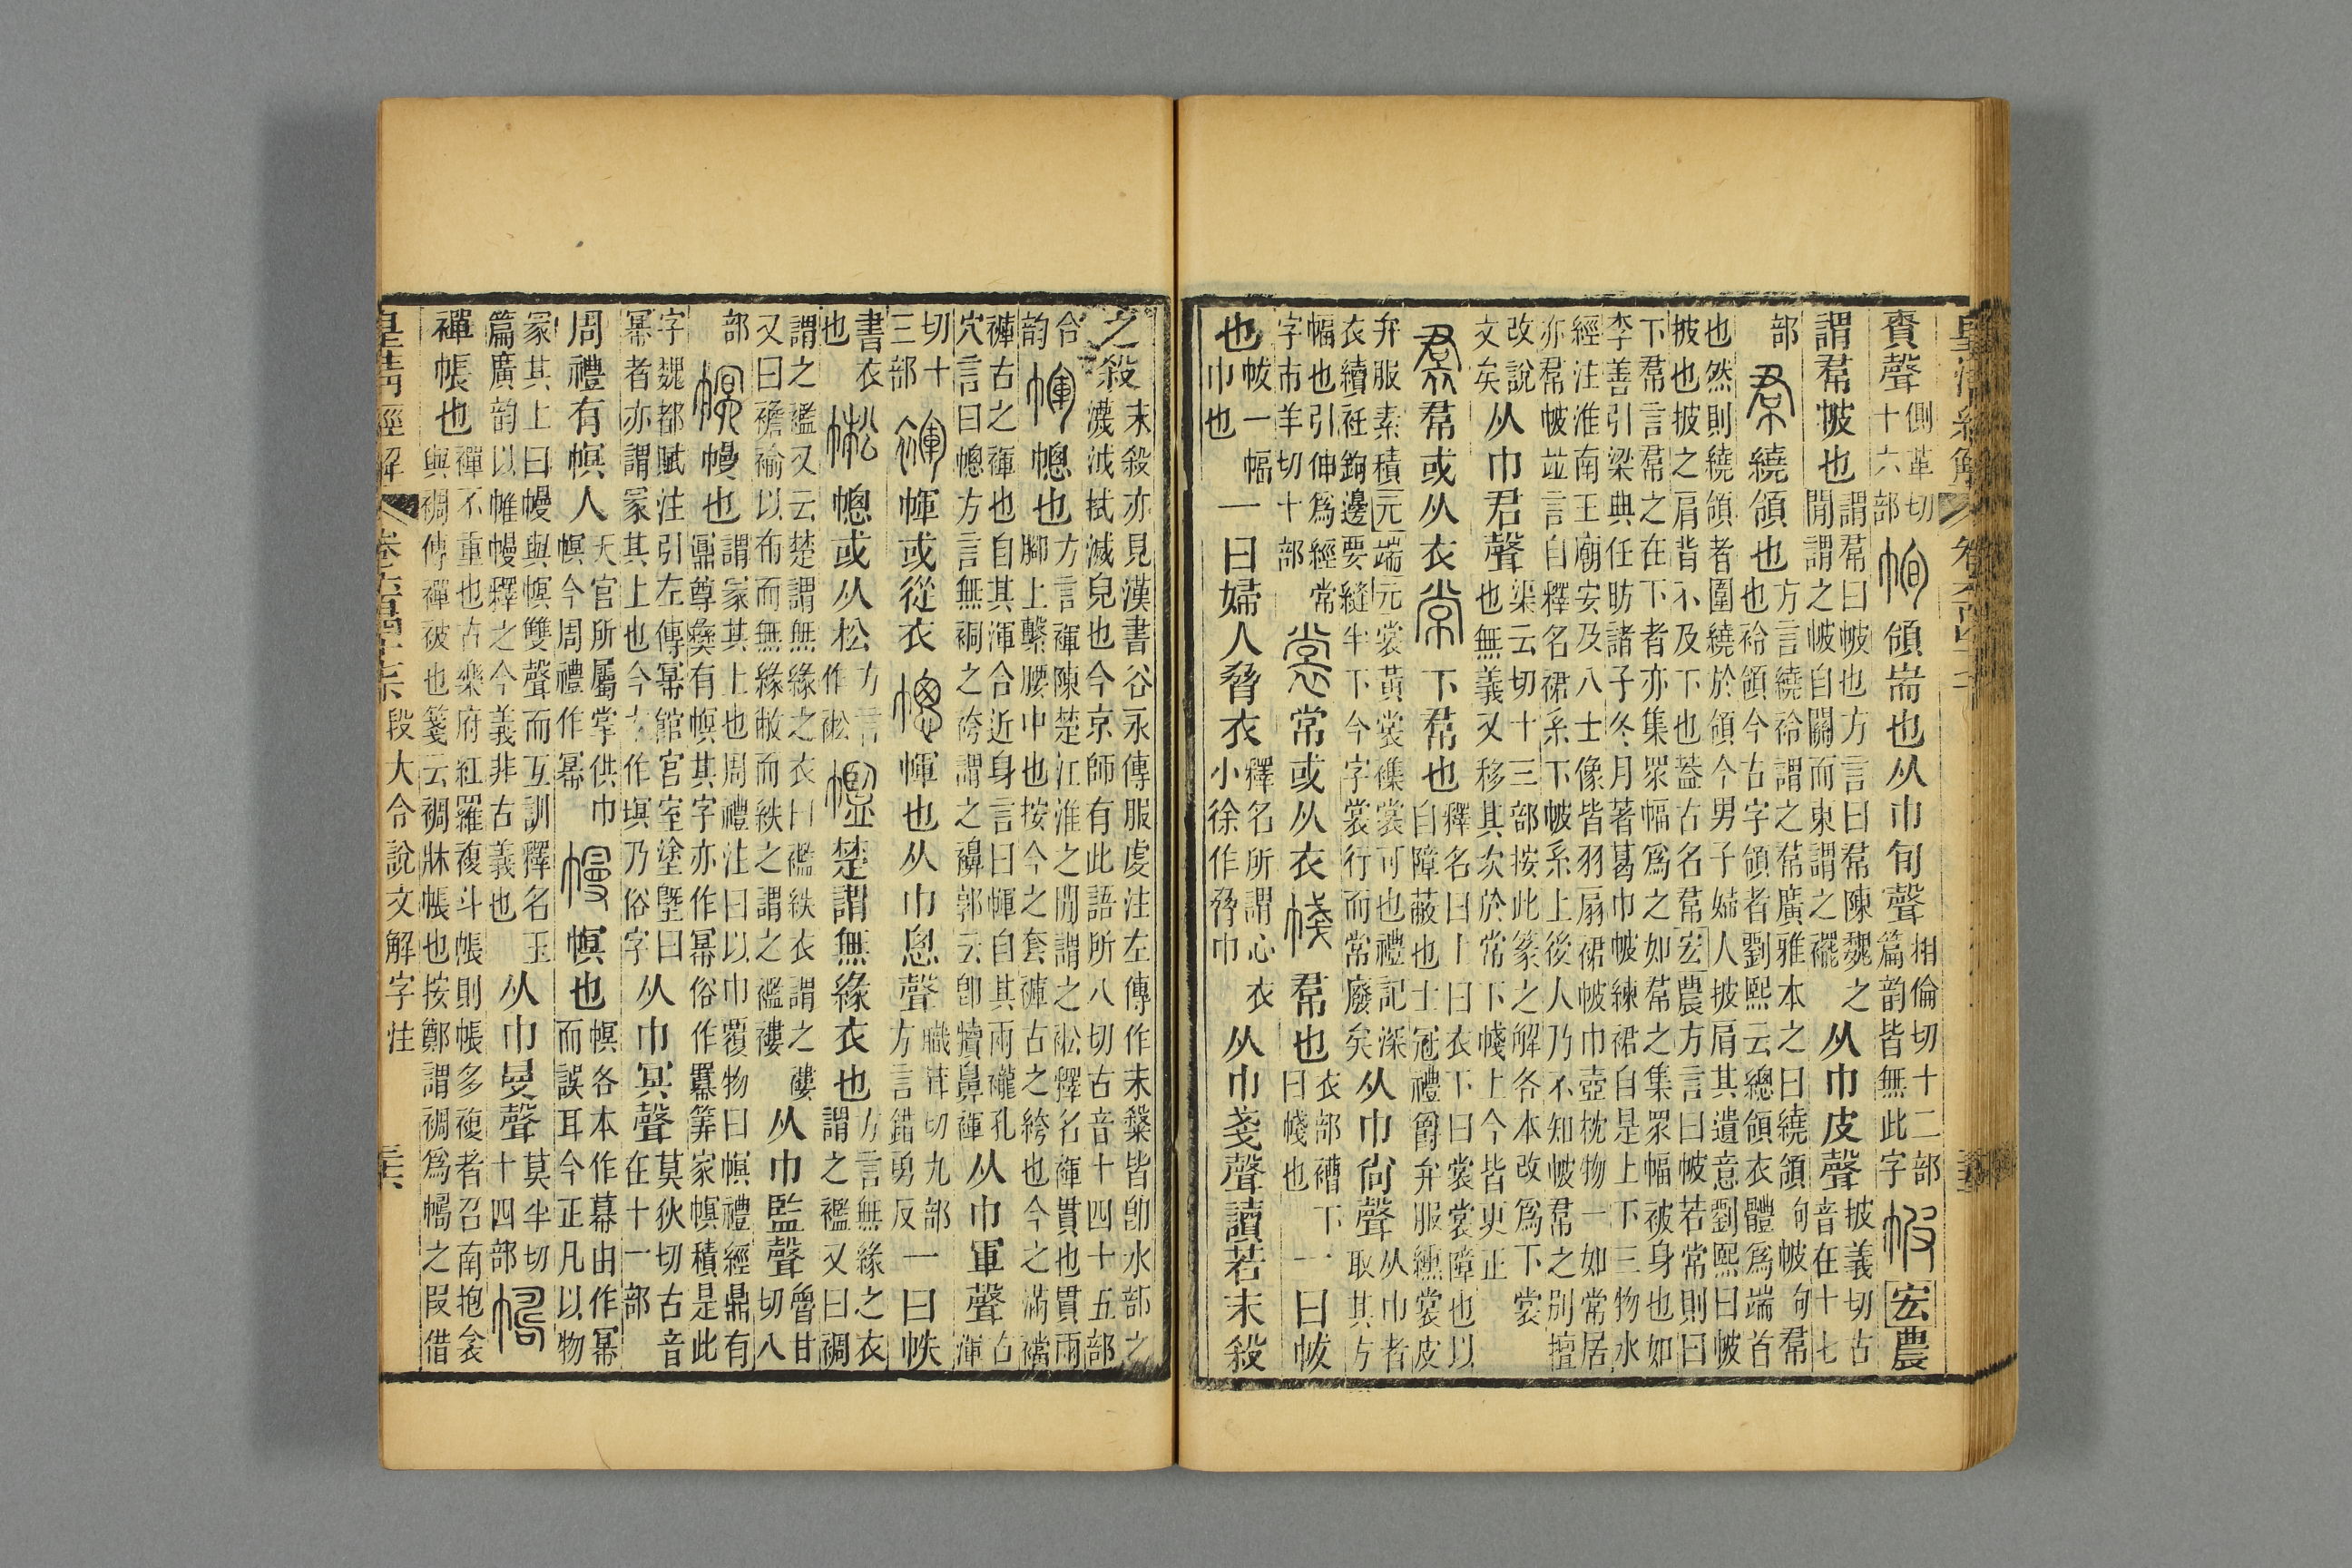 皇清經解
責聲側革切十六部領耑也从巾旬聲相倫切十二部篇韵皆無此字宏農
謂帬帔也謂帬曰帔也方言曰帬陳魏之閒謂之帔自關而東謂之襬从巾皮聲披義切古音在十七
部繞領也方言繞衿謂之帬廣雅本之曰繞領句帔句帬也衿領今古字領者劉熙云總領衣體爲端首
也然則繞領者圍繞於領今男子婦人披肩其遺意劉熙曰帔披也披之肩背不及下也葢古名帬宏農方言曰帔若常則曰
下帬言帬之在下者亦集眾幅爲之如帬之集眾幅被身也如李善引梁典任昉諸子冬月著葛巾帔練裙自是上下三物水
經注淮南王廟安及八士像皆羽扇裙帔巾壺枕物一如常居亦帬帔竝言自釋名裙系下帔系上後人乃不知帔帬之別擅
改說文矣从巾君聲渠云切十三部按此篆之解各本改爲下裳也無義又移其次於常下帴上今皆更正
帬或从衣下帬也釋名曰上曰衣下曰裳裳障也以自障蔽也士冠禮爵弁服纁裳皮
弁服素積元端元裳黃裳襍裳可也禮記深衣續衽鉤邊要縫半下今字裳行而常廢矣从巾尙聲从巾者取其方
幅也引伸爲經常字市羊切十部常或从衣帬也衣部褿下曰帴也一曰帗
也帗一幅巾也一曰婦人脅衣釋名所謂心衣小徐作脅巾从巾戔聲讀若末殺
之殺末殺亦見漢書谷永傳服虔注左傳作末槃皆卽水部之濊泧拭滅皃也今京師有此語所八切古音十四十五部
合韵幒也方言褌陳楚江淮之閒謂之㡓釋名褌貫也貫兩腳上繫腰中也按今之套褲古之絝也今之滿襠
褲古之褌也自其渾合近身言曰幝自其兩襱孔穴言曰幒方言無裥之袴謂之襣郭云卽犢鼻褌从巾軍聲古渾
切十三部幝或從衣幝也从巾悤聲職茸切九部方言錯勇反一曰帙
書衣也幒或从松方言作㡓楚謂無緣衣也方言無緣之衣謂之襤又曰裯
謂之襤又云楚謂無緣之衣曰襤紩衣謂之褸又曰襜褕以布而無緣敝而紩之謂之襤褸从巾監聲魯甘切八
部幔也謂冡其上也周禮注曰以巾覆物曰幎禮經鼎有鼏尊彝有幎其字亦作冪俗作羃筭家幎積是此
字魏都賦注引左傳冪館宮室塗塈曰冪者亦謂冡其上也今左作塓乃俗字从巾冥聲莫狄切古音在十一部
周禮有幎人天官所屬掌供巾幎今周禮作冪幎也幎各本作幕由作冪而誤耳今正凡以物
冡其上曰幔與幎雙聲而互訓釋名玉篇廣韵以帷幔釋之今義非古義也从巾曼聲莫半切十四部
襌帳也襌不重也古樂府紅羅複斗帳則帳多複者召南抱衾與裯傳襌被也箋云裯牀帳也按鄭謂裯爲幬之叚借
皇清經解 段大令說文解字注